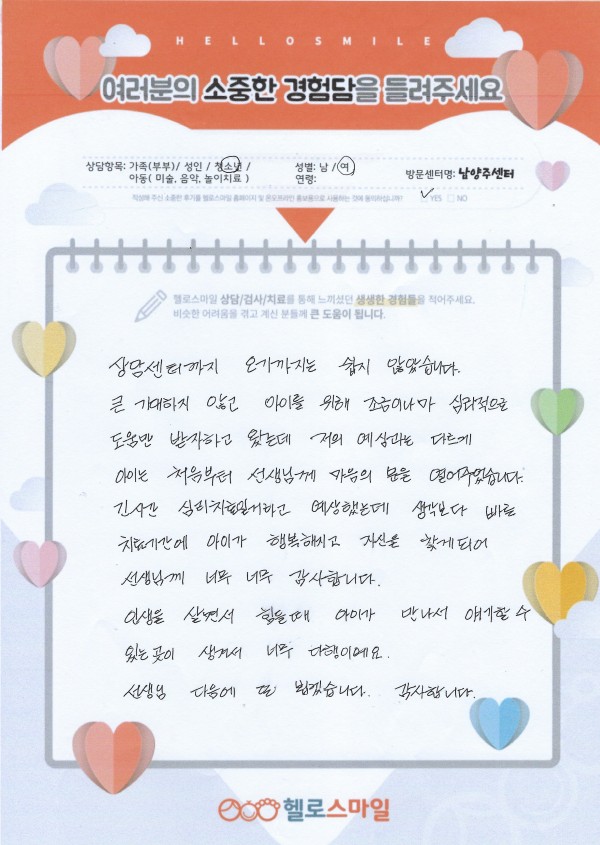 HELLOSMILE
여러분의 소중한 경험담을 들려주세요
상담항목: 가족(부부)/ 성인 / 청소년 /
아동( 미술, 음악, 놀이치료 )
성별: 남 / 여
연령:
방문센터명: 남양주센터
작성해 주신 소중한 후기를 헬로스마일 홈페이지 및 온오프라인 홍보용으로 사용하는 것에 동의하십니까? YES NO
헬로스마일 상담/검사/치료를 통해 느끼셨던 생생한 경험들을 적어주세요.
비슷한 어려움을 겪고 계신 분들께 큰 도움이 됩니다.
상담센터까지 오기까지는 쉽지 않았습니다.
큰 기대하지 않고 아이를 위해 조금이나마 심리적으로
도움만 받자하고 왔는데 저의 예상과는 다르게
아이는 처음부터 선생님께 마음의 문을 열어주었습니다.
긴시간 심리치료일거라고 예상했는데 생각보다 빠른
치료기간에 아이가 행복해지고 자신을 찾게되어
선생님께 너무 너무 감사합니다.
인생을 살면서 힘들때 아이가 만나서 얘기할 수
있는곳이 생겨서 너무 다행이에요.
선생님 다음에 또 뵙겠습니다. 감사합니다.
헬로스마일